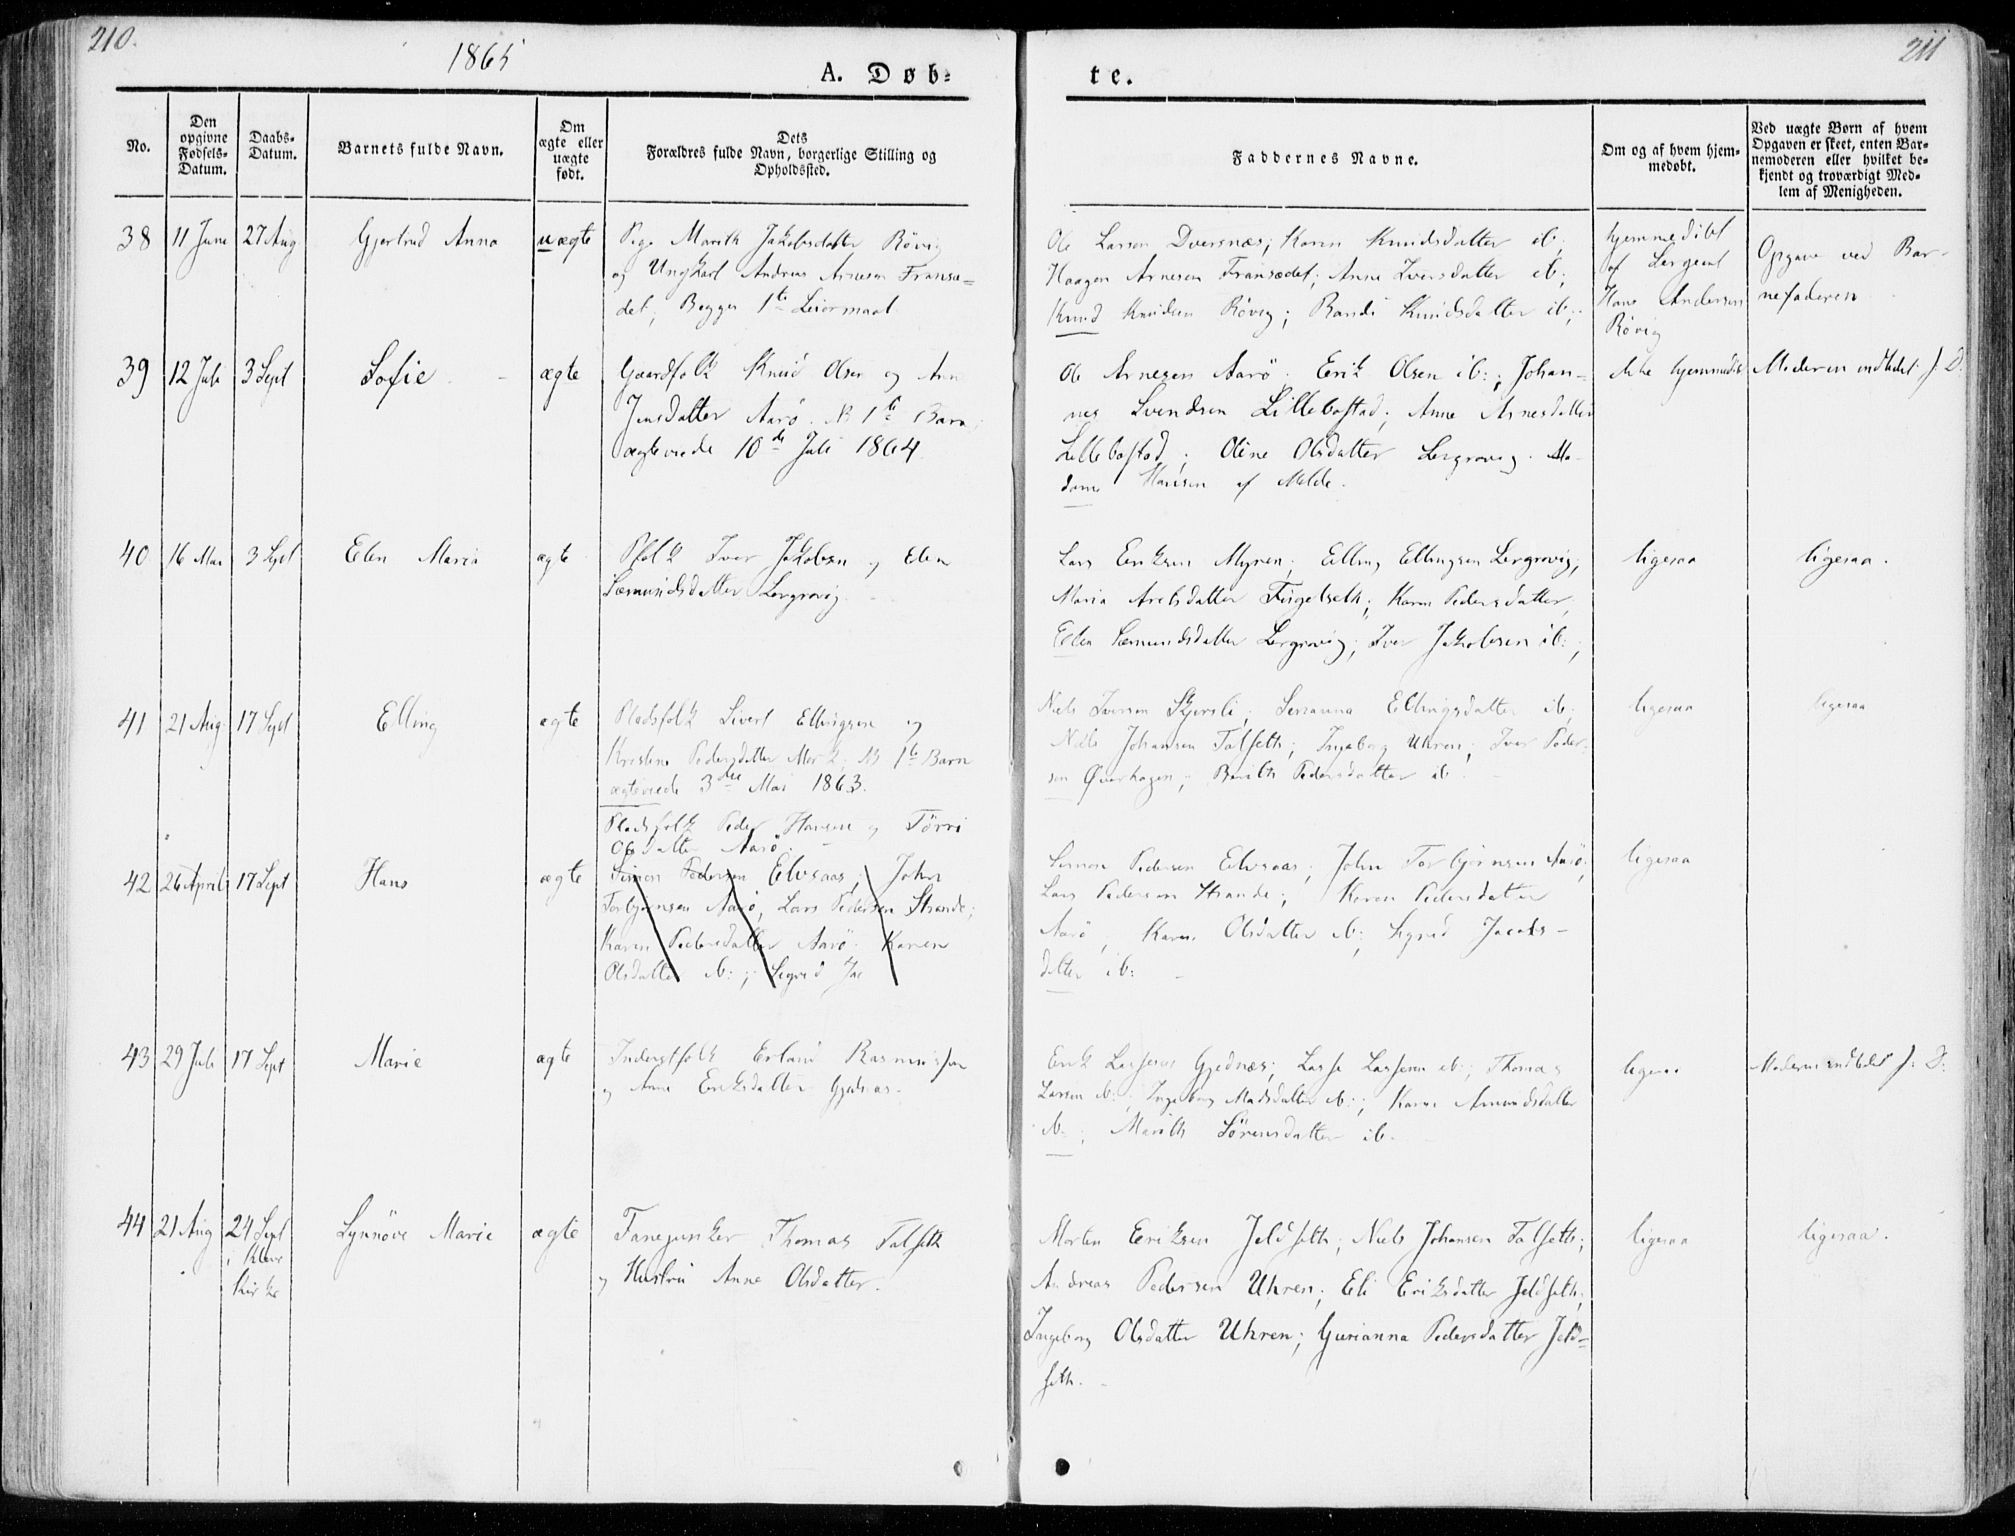 210.
1865
A. Døb-
No.
Den opgivne Fødsels-Datum.
Daabs-Datum.
Barnets fulde Navn.
Om ægte eller uægte født.
Dets Forældres fulde Navn, borgerlige Stilling og Opholdssted.
38 11 Juni 27 Aug Gjertrud Anna uægte Pige Marith Jakobsdatter Rövig
og Ungkarl Andreas Arnesen Fransæ-
det, Begges 1te Leiermaal
39 12 Juli 3 Sept Sofie ægte Gaardfolk Knud Olsen og Ane
Jensdatter Aarö. NB 1te Barn;
ægteviede 10de Juli 1864
40 16 Mai 3 Sept Elen Maria ægte Pfolk Iver Jakobsen og Elen
Sæmundsdatter Lergrovig.
41 21 Aug 17 Sept Elling ægte Pladsfolk Sivert Ellingsen og
Kristine Pedersdatter Mork; NB 1te Barn
ægteviede 3die Mai 1863.
Pladsfolk Peder Hansen og Törri
Olsdatter Aarö.
42 26 April 17 Sept Hans ægte Simon Pedersen Elvsaas; John
Torbjørnsen Aarö, Lars Pedersen Strande;
Karen Pedersdatter Aarö. Karen
Olsdatter ib:; Sigrid Jac
43 29 Juli 17 Sept Marie ægte Inderstfolk Erland Rasmussen
og Ane Eriksdatter Gjednæs.
44 21 Aug 24 Sept Synnöve Marie ægte Fanejunker Thomas Talseth
i Kleve
Kirke
og Hustru Anne Olsdatter.
211
te.
Faddernes Navne.
Om og af hvem hjem-medøbt.
Ved uægte Børn af hvem Opgaven er skeet, enten Bar-nemoderen eller hvilket be-kjendt og troværdigt Med-lem af Menigheden.
Ole Larsen Dversnæs; Karen Knudsdatter ib;
Haagen Arnesen Fransædet; Anne Iversdatter ib;
Knud Knudsen Rövig; Randi Knudsdatter ib;
hjemmedöbt
af Sergeant
Hans Andersen
Rövig
Opgave ved Bar-
nefaderen
Ole Arnesen Aarö. Erik Olsen ib:; Johan-
nes Svendsen Lillebostad; Anne Arnesdatter
Lillebostad; Oline Olsdatter Lergrovig. Ma-
dame Hansen af Molde.
ikke hjemmedöbt Moderen indledet f. D.
Lars Eriksen Myren; Elling Ellingsen Lergrovig,
Maria Axelsdatter Fugelseth; Karen Pedersdatter,
Elen Sæmundsdatter Lergrovig; Iver Jakobsen ib:;
ligesaa ligesaa.
Niels Iversen Skjersli; Serianna Ellingsdatter ib;
Niels Johansen Talseth; Ingeborg Uhren; Iver Peder-
sen Øverhagen; Berith Pedersdatter ib.
ligesaa ligesaa
Simon Pedersen Elvsaas; John Torbjørnsen Aarö;
Lars Pedersen Strande; Karen Pedersdatter
Aarö; Karen Olsdatter ib; Sigrid Jacobs-
datter ib:
ligesaa
Erik Lassesen Gjednæs; Lasse Lassesen ib; Thomas
Larsen ib:; Ingeborg Madsdatter ib:; Karen Amundsdatter
ib:; Marith Sörensdatter ib.
ligesaa Moderen indledet f: D:
Morten Eriksen Jeldseth; Niels Johansen Talseth;
Andreas Pedersen Uhren; Eli Eriksdatter Jeldseth;
Ingeborg Olsdatter Uhren; Gurianna Pedersdatter Jeld-
seth.
ligesaa ligesaa.